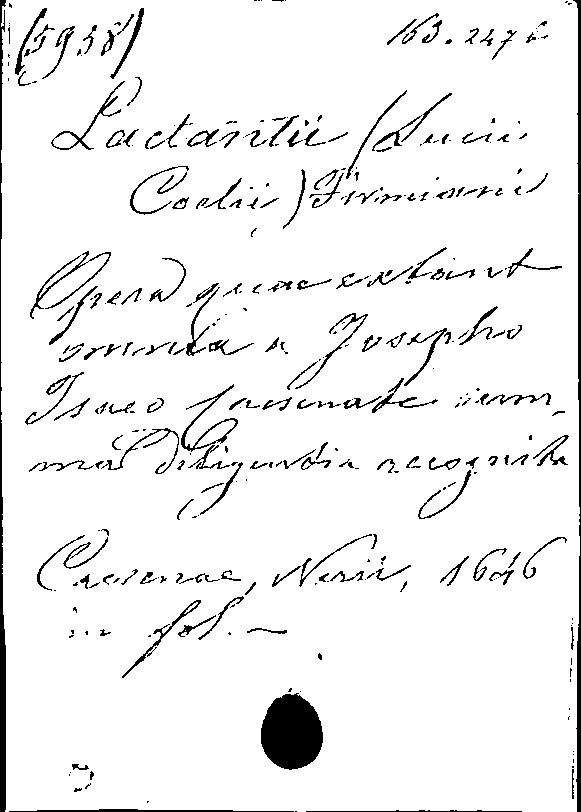 (5938) 163.247 b
Lactantii (Lucii
Coelii) Firmiani
Opera quae extant
omnia a Josepho
Isaeo Caesenate sum-
ma diligentia recognita
Caesenae, Nerii, 1646
in fol. -